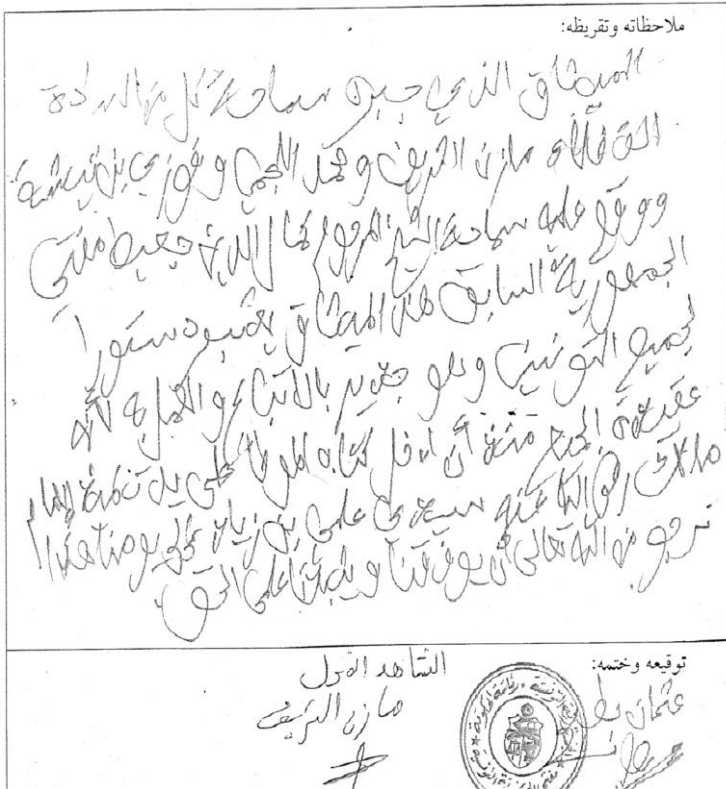 ملاحظاته وتقريظه:
الميثاق الذي حبره سماحة كل من السادة
الفضلاء مازن الشريف ومحمد اللجمي وفوزي بن تيشة
ووقع عليه سماحة الشيخ المرحوم كمال الدين جعيط مفتي
الجمهورية السابق هذا الميثاق يعتبر دستورا
لجميع التونسيين وهو جدير بالاتباع والعمل به لأنه
عقيدة الجميع منذ أن دخل كتاب الموطأ على يد تلميذ الإمام
مالك رضي الله عنه سيدي علي بن زياد إلى يومنا هذا
نرجو من الله تعالى أن يوفقنا ويثبتنا على الحق
توقيعه وختمه:
عثمان بطيخ
الشاهد العدل
مازن الشريف